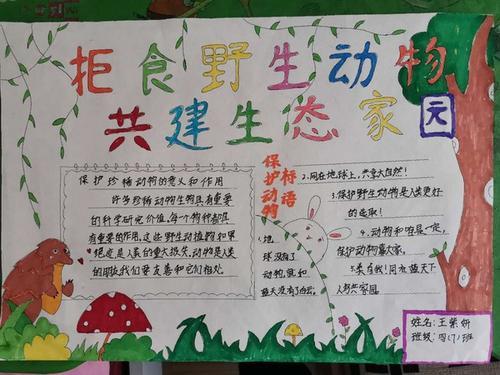 拒食野生动物
共建生态家园
保护珍稀动物的意义和作用
许多珍稀动物生物具有重要
的科学研究价值,每个物种都具
有重要的作用,这些野生动植物如果
绝迹,是人类的重大损失,动物是人类
的朋友我们要友善和它们相处
保护动物
标语
1.地
球没有了
动物,就如
蓝天没有了白云。
2.同在地球上,共享大自然!
3.保护野生动物是人类更好
的选取!
4.动物和咱是一家,
保护动物靠大家。
人类共家园
姓名:王紫妍
班级:四(7)班